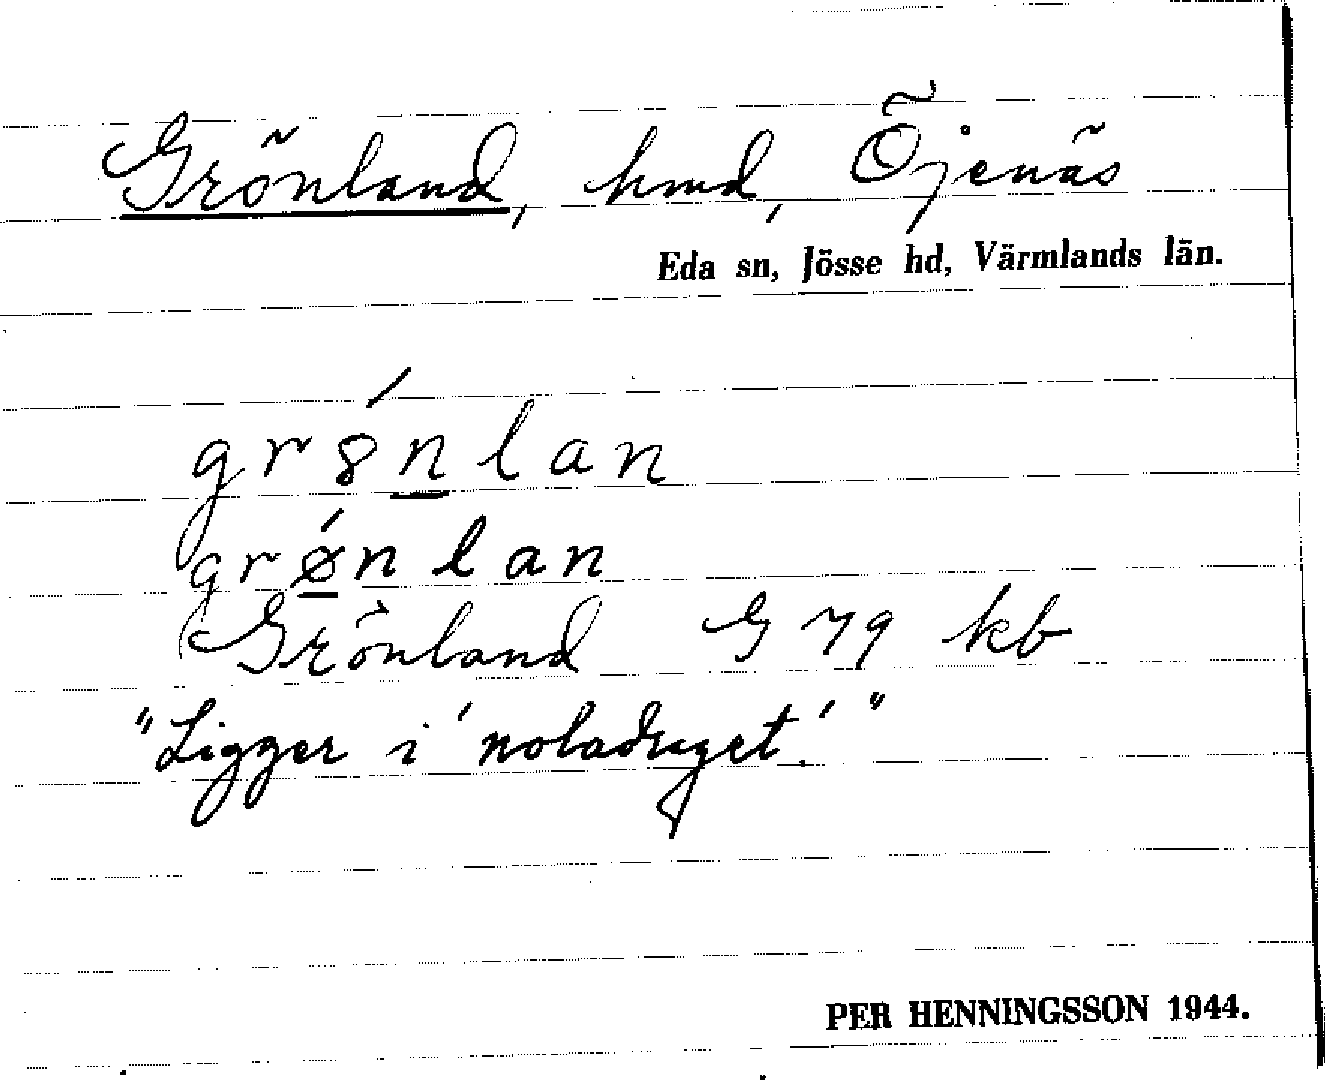 Grönland, hmd, Öjenäs
Eda sn, Jösse hd, Värmlands län.
gr8́nlan
grǿnlan
Grönland G 79 kb
"Ligger i 'noladraget'."
PER HENNINGSSON 1944.